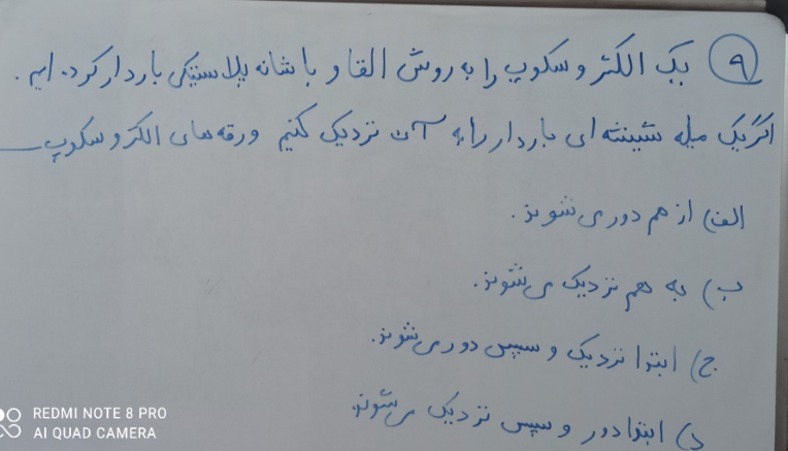 ۹ یک الکتروسکوپ را به روش القا و با شانه پلاستیکی باردار کرده ایم.
اگر یک میله شیشه ای باردار را به آن نزدیک کنیم ورقه های الکتروسکوپ
الف) از هم دور می شوند.
ب) به هم نزدیک می شوند.
ج) ابتدا نزدیک و سپس دور می شوند.
د) ابتدا دور و سپس نزدیک می شوند
REDMI NOTE 8 PRO
AI QUAD CAMERA